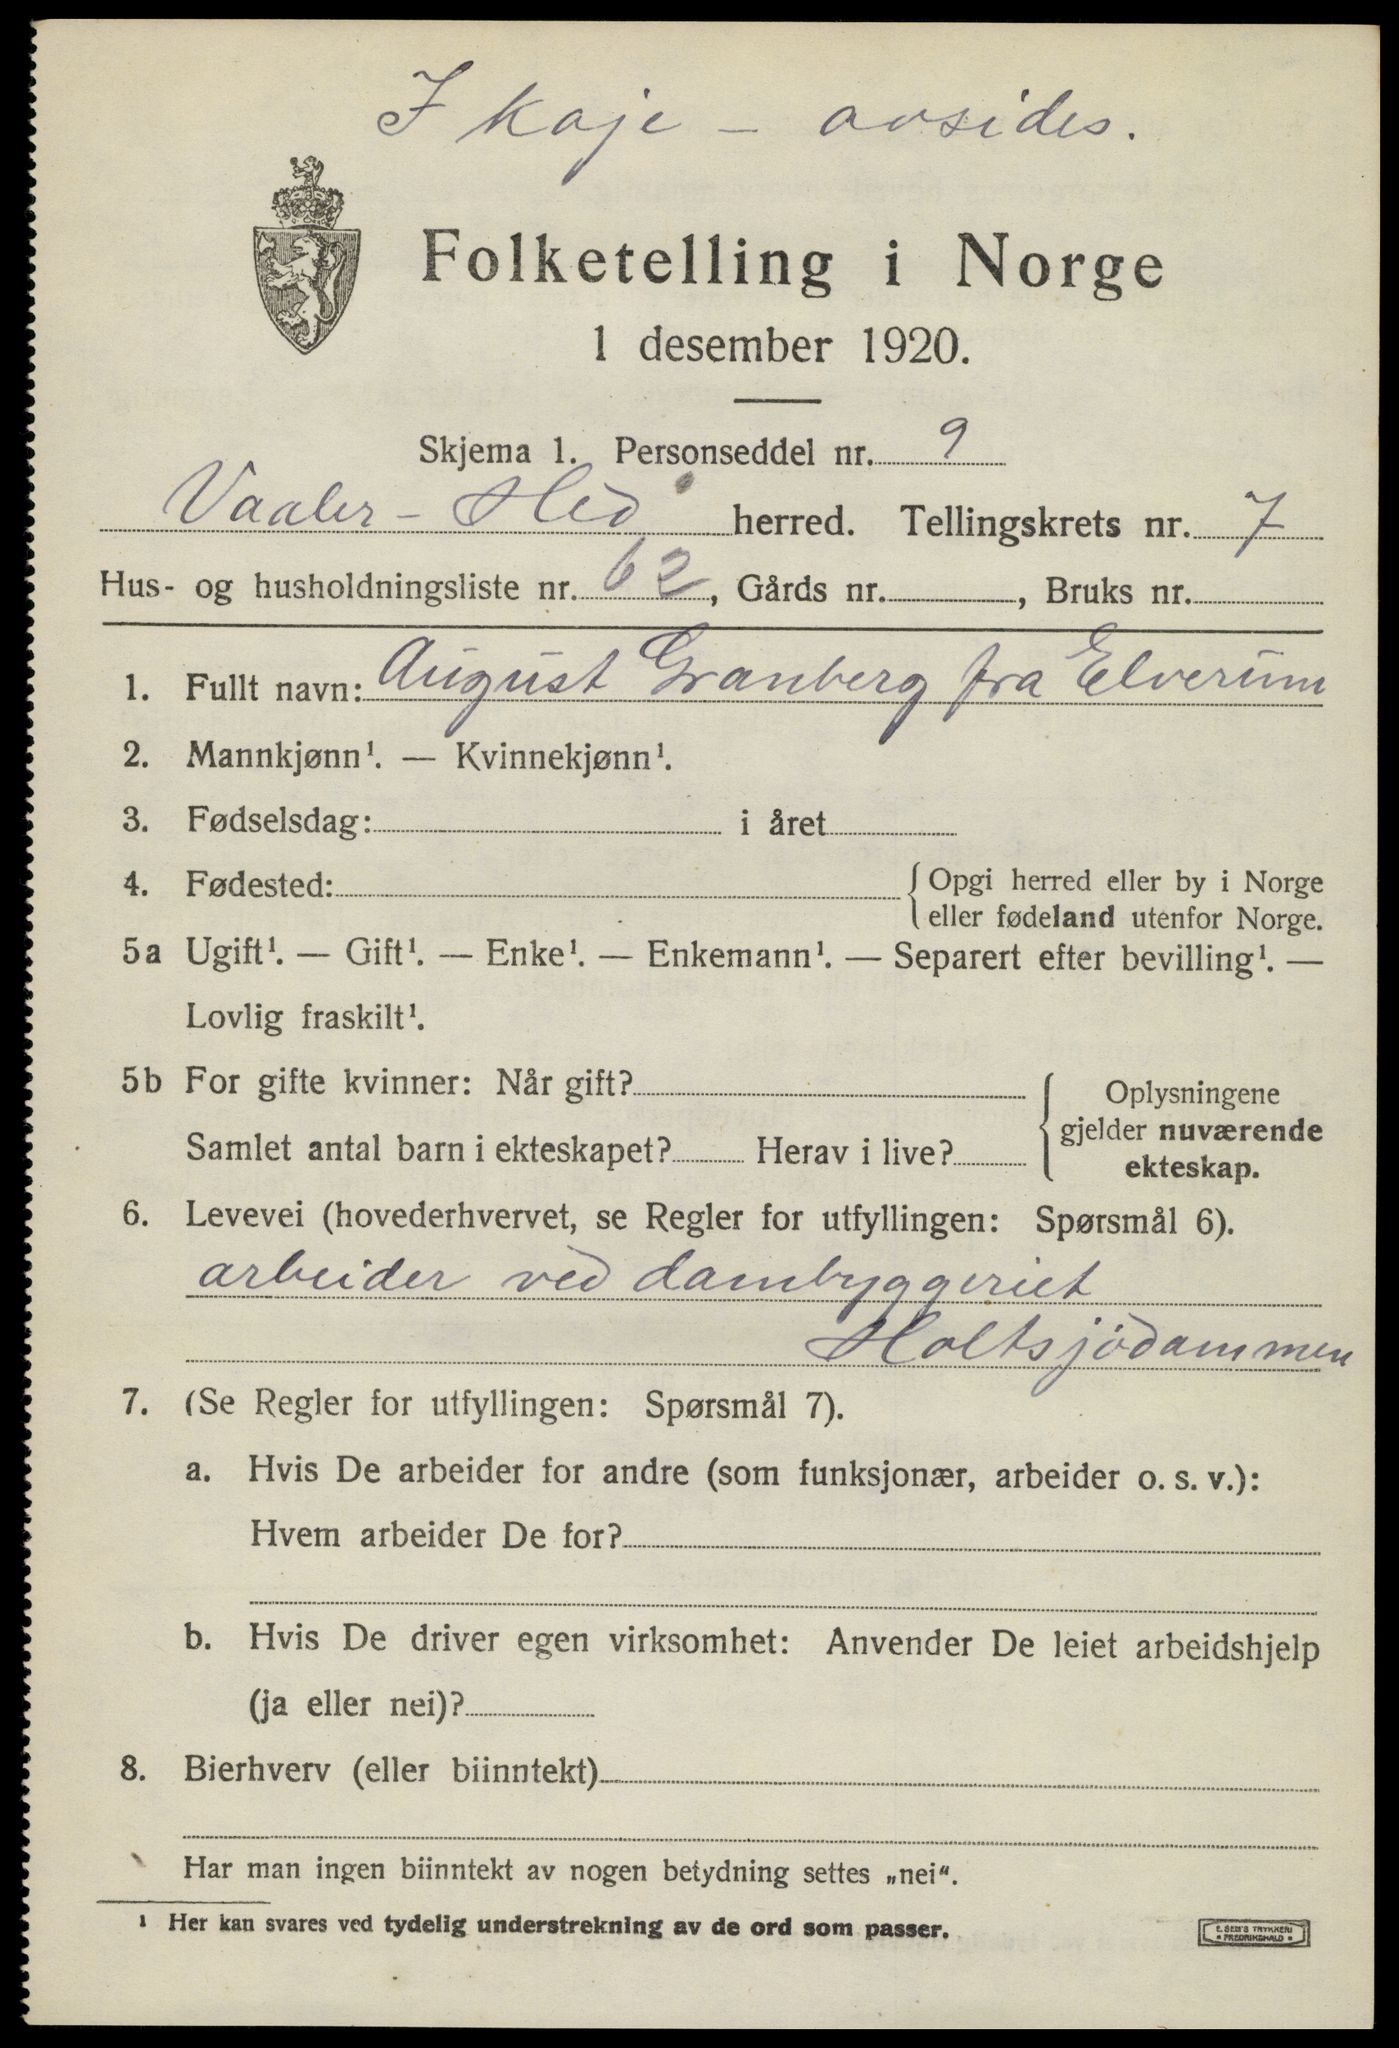 I koje - avsides.
Folketelling i Norge
1 desember 1920.
Skjema 1. Personseddel nr. 9
Vaaler - Hed herred. Tellingskrets nr. 7
Hus- og husholdningsliste nr. 62, Gårds nr. , Bruks nr.
1. Fullt navn: August Granberg fra Elverum
2. Mannkjønn¹. — Kvinnekjønn¹.
3. Fødselsdag: i året
4. Fødested: { Opgi herred eller by i Norge
eller fødeland utenfor Norge.
5a Ugift¹. — Gift¹. — Enke¹. — Enkemann¹. — Separert efter bevilling¹. —
Lovlig fraskilt¹.
5b For gifte kvinner: Når gift? { Oplysningene
gjelder nuværende
Samlet antal barn i ekteskapet? Herav i live? ekteskap.
6. Levevei (hovederhvervet, se Regler for utfyllingen: Spørsmål 6).
arbeider ved dambyggeriet
Holtsjödammen
7. (Se Regler for utfyllingen: Spørsmål 7).
a. Hvis De arbeider for andre (som funksjonær, arbeider o. s. v.):
Hvem arbeider De for?
b. Hvis De driver egen virksomhet: Anvender De leiet arbeidshjelp
(ja eller nei)?
8. Bierhverv (eller biinntekt)
Har man ingen biinntekt av nogen betydning settes „nei“.
¹ Her kan svares ved tydelig understrekning av de ord som passer.
E. SEM'S TRYKKERI
• FREDRIKSHALD •